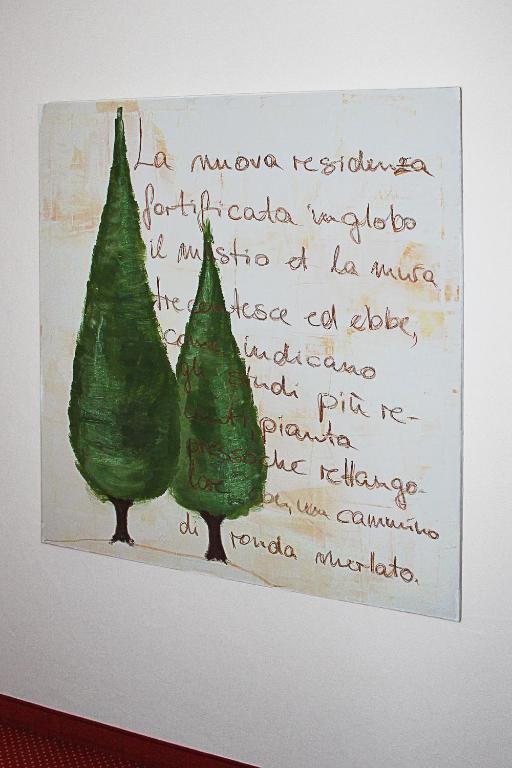 La nuova residenza
fortificata inglobo
il mastio et la mura
trecentesce ed ebbe,
come indicano
gli studi più re-
centi, pianta
pressoche rettango-
lare con cammino
di ronda merlato.